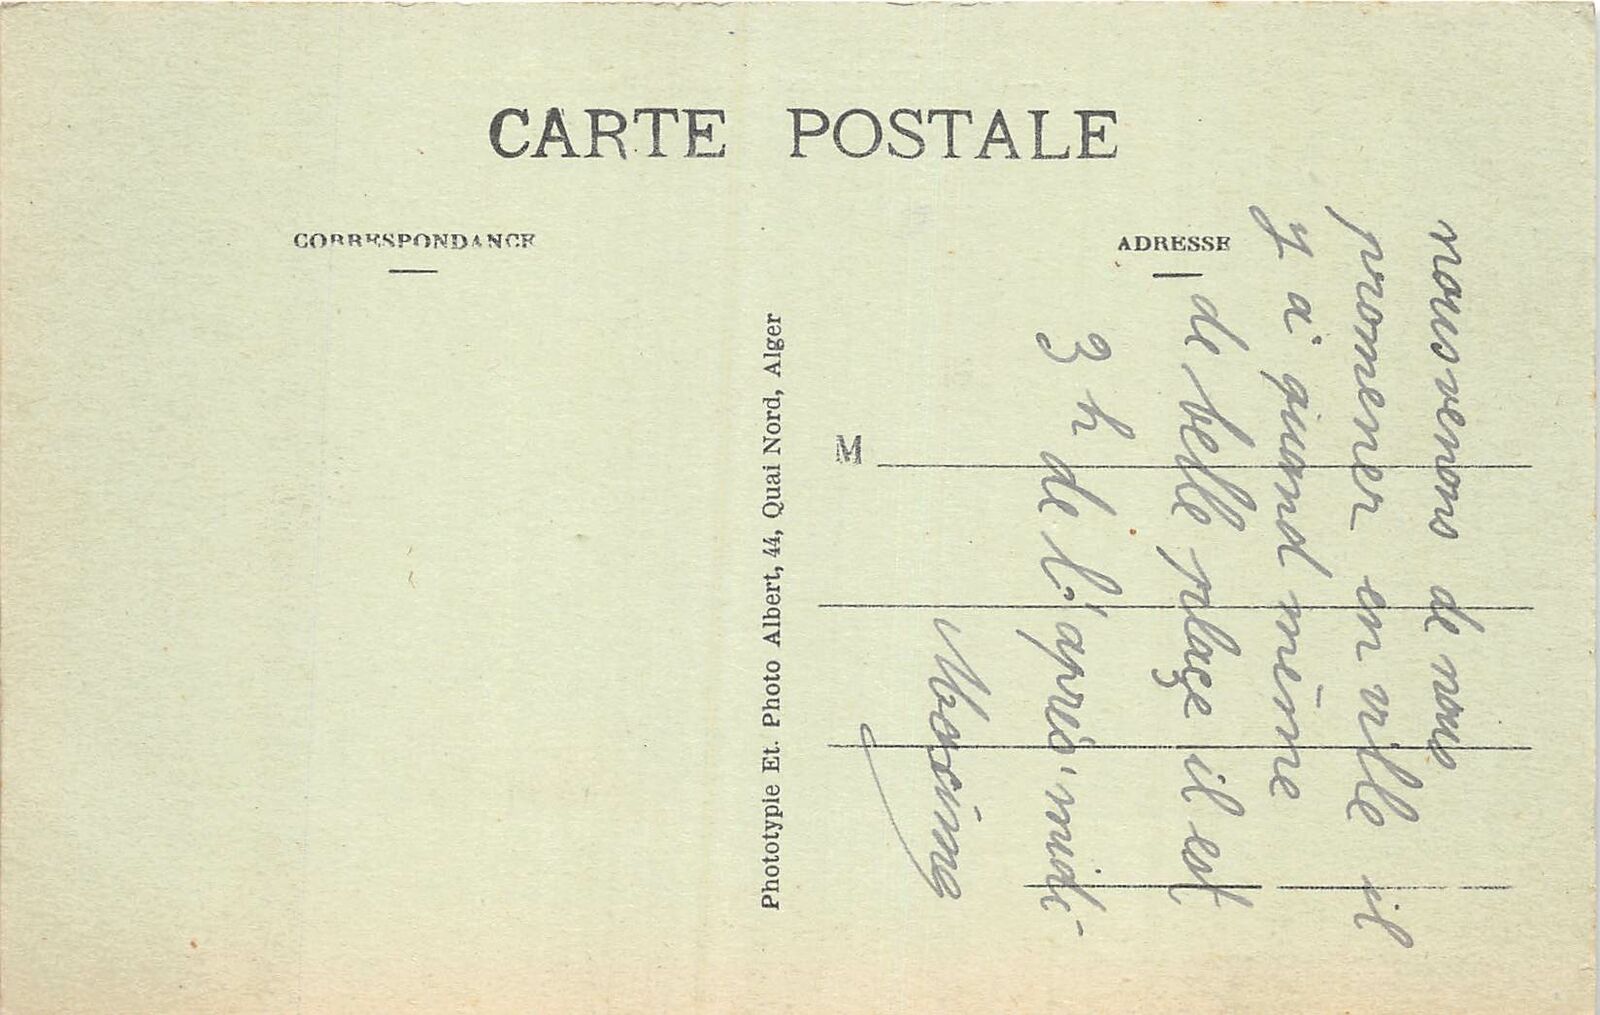 CARTE POSTALE
CORRESPONDANCE
ADRESSE
M
Phototypie Et. Photo Albert, 44, Quai Nord, Alger
nous venons de nous
promener en ville il
y a quand même
de belle plaçe il est
3 h de l'après'midi-
Maxime